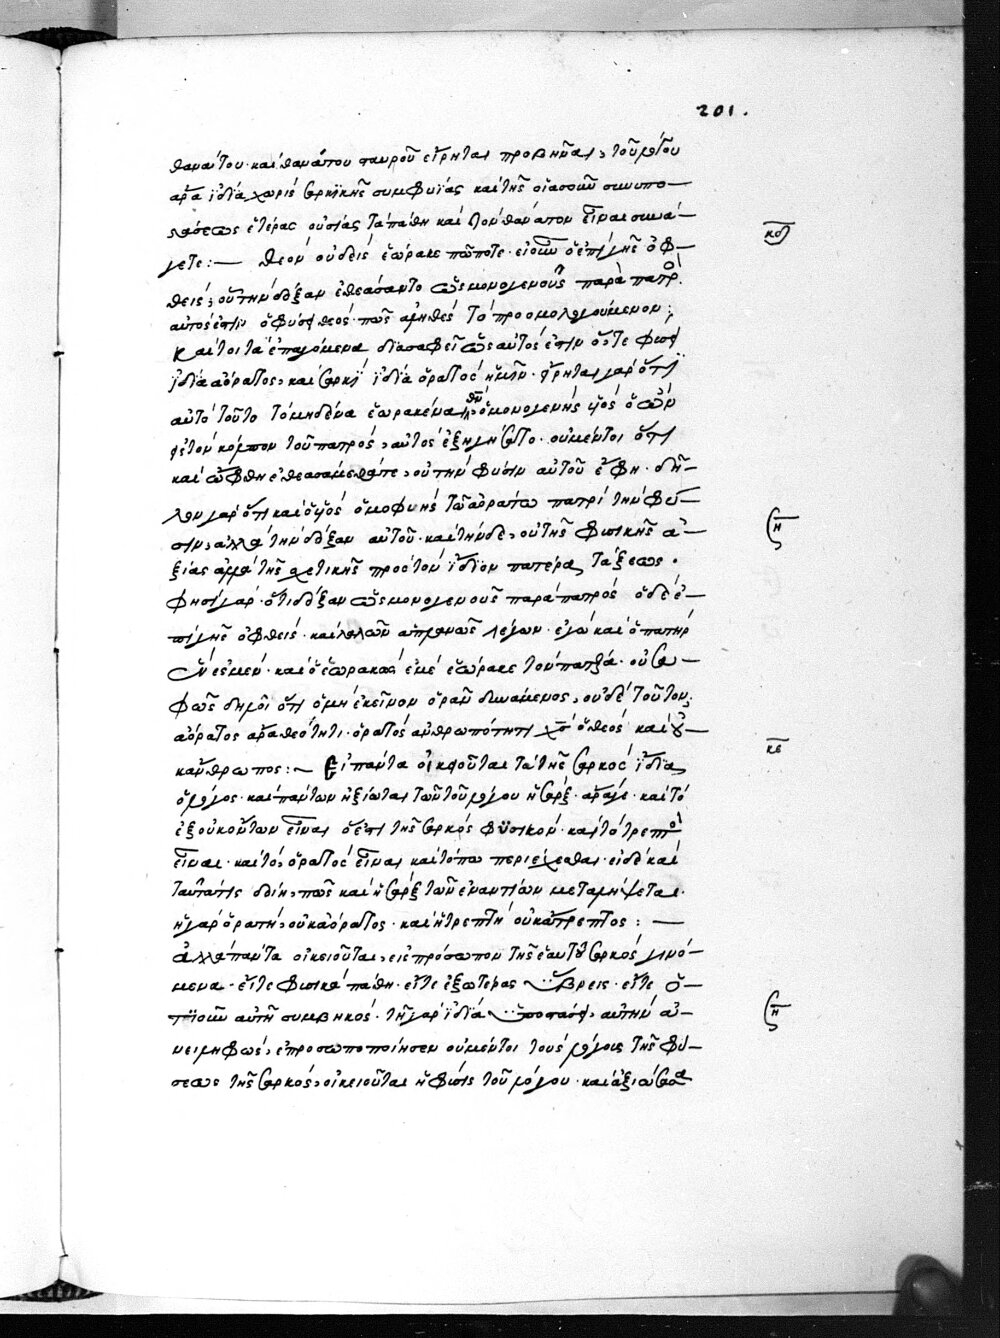 201.
θανάτου· καὶ θανάτου σταυροῦ εἴρηται προβῆναι, τοῦ λόγου
ἄρα ἰδίᾳ χωρὶς σαρκικῆς συμφυΐας καὶ τῆς οἱασοῦν συνυπο–
στάσεως ἑτέρας οὐσίας τὰ πάθη καὶ τὸν θάνατον εἶναι συνά–
γετε:— Θεὸν οὐδεὶς ἑώρακε πώποτε· εἰ οὖν ὁ ἐπὶ γῆς ὀφ–
κδ
θεὶς, οὗ τὴν δόξαν ἐθεάσαντο ὡς μονογενοῦς παρὰ πατρὸς
αὐτός ἐστιν ὁ φύσει θεὸς· πῶς ἀληθὲς τὸ προομολογούμενον;
Καίτοι τὰ ἐπαγόμενα διασαφεῖ ὡς αὐτός ἐστιν ὅς τε φύσει
ἰδίᾳ ἀόρατος, καὶ σαρκὶ ἰδίᾳ ὁρατὸς ἡμῖν· εἴρηται γὰρ ὅτι
αὐτὸ τοῦτο τὸ μηδένα ἑωρακέναι θεὸν ὁ μονογενὴς υἱὸς ὁ ὢν
εἰς τὸν κόλπον τοῦ πατρὸς, αὐτὸς ἐξηγήσατο· οὐ μέντοι ὅτι
καὶ ὤφθη ἐθεασάμεθά τε, οὐ τὴν φύσιν αὐτοῦ ἔφη· δῆ–
λον γὰρ ὅτι καὶ ὁ υἱὸς ὁμοφυὴς τῷ ἀοράτῳ πατρὶ τὴν φύ–
σιν, ἀλλὰ τὴν δόξαν αὐτοῦ· καὶ τήνδε, οὐ τῆς φυσικῆς ἀ–
ση
ξίας ἀλλὰ τῆς σχετικῆς πρὸς τὸν ἴδιον πατέρα τάξεως·
Φησὶ γὰρ· ὅτι δόξαν ὡς μονογενοῦς παρὰ πατρός ὁ δὲ ἐ–
πὶ γῆς ὀφθεὶς· καὶ λαλῶν ἀπλανῶς λέγων· ἐγὼ καὶ ὁ πατὴρ
ἕν ἐσμεν· καὶ ὁ ἑωρακὼς ἐμὲ ἑώρακε τὸν πατέρα· οὐ σα–
φῶς δηλοῖ ὅτι ὁ μὴ ἐκεῖνον ὁρᾶν δυνάμενος, οὐδὲ τοῦτον;
ἀόρατος ἄρα θεότητι· ὁρατὸς ἀνθρωπότητι χς ὁ θεὸς καὶ οὐ–
κ ἄνθρωπος:— Εἰ πάντα οἰκειοῦται τὰ τῆς σαρκὸς ἰδίᾳ
κε
ὁ λόγος· καὶ πάντων ἠξίωται τῶν τοῦ λόγου ἡ σὰρξ· ἄρά γε· καὶ τὸ
ἐξ οὐκ ὄντων εἶναι ὅ ἐστι τῆς σαρκὸς φυσικὸν· καὶ τὸ τρεπτὸν
εἶναι· καὶ τὸ, ὁρατὸς εἶναι καὶ τόπῳ περιέχεσθαι· εἰ δὲ καὶ
ταύτά τις δοίη, πῶς καὶ ἡ σὰρξ τῶν ἐναντίων μεταλήψεται·
ἡ γὰρ ὁρατὴ, οὐκ ἀόρατος· καὶ ἡ τρεπτὴ οὐκ ἄτρεπτος:—
ἀλλὰ πάντα οἰκειοῦται, εἰς πρόσωπον τῆς ἑαυτοῦ σαρκὸς γινό–
μενα· εἴτε φυσικὰ πάθη· εἴτε ἐξωτέρας ὕβρεις· εἴτε ὁ–
τιοῦν αὐτῇ συμβηκός· τῇ γὰρ ἰδίᾳ ὑποστάσει, αὐτὴν ἀ–
ση
νειληφὼς, ἐπροσωποποίησεν οὐ μέντοι τοὺς λόγους τῆς φύ–
σεως τῆς σαρκὸς, οἰκειοῦται ἡ φύσις τοῦ λόγου· καὶ ἀξιώσασα